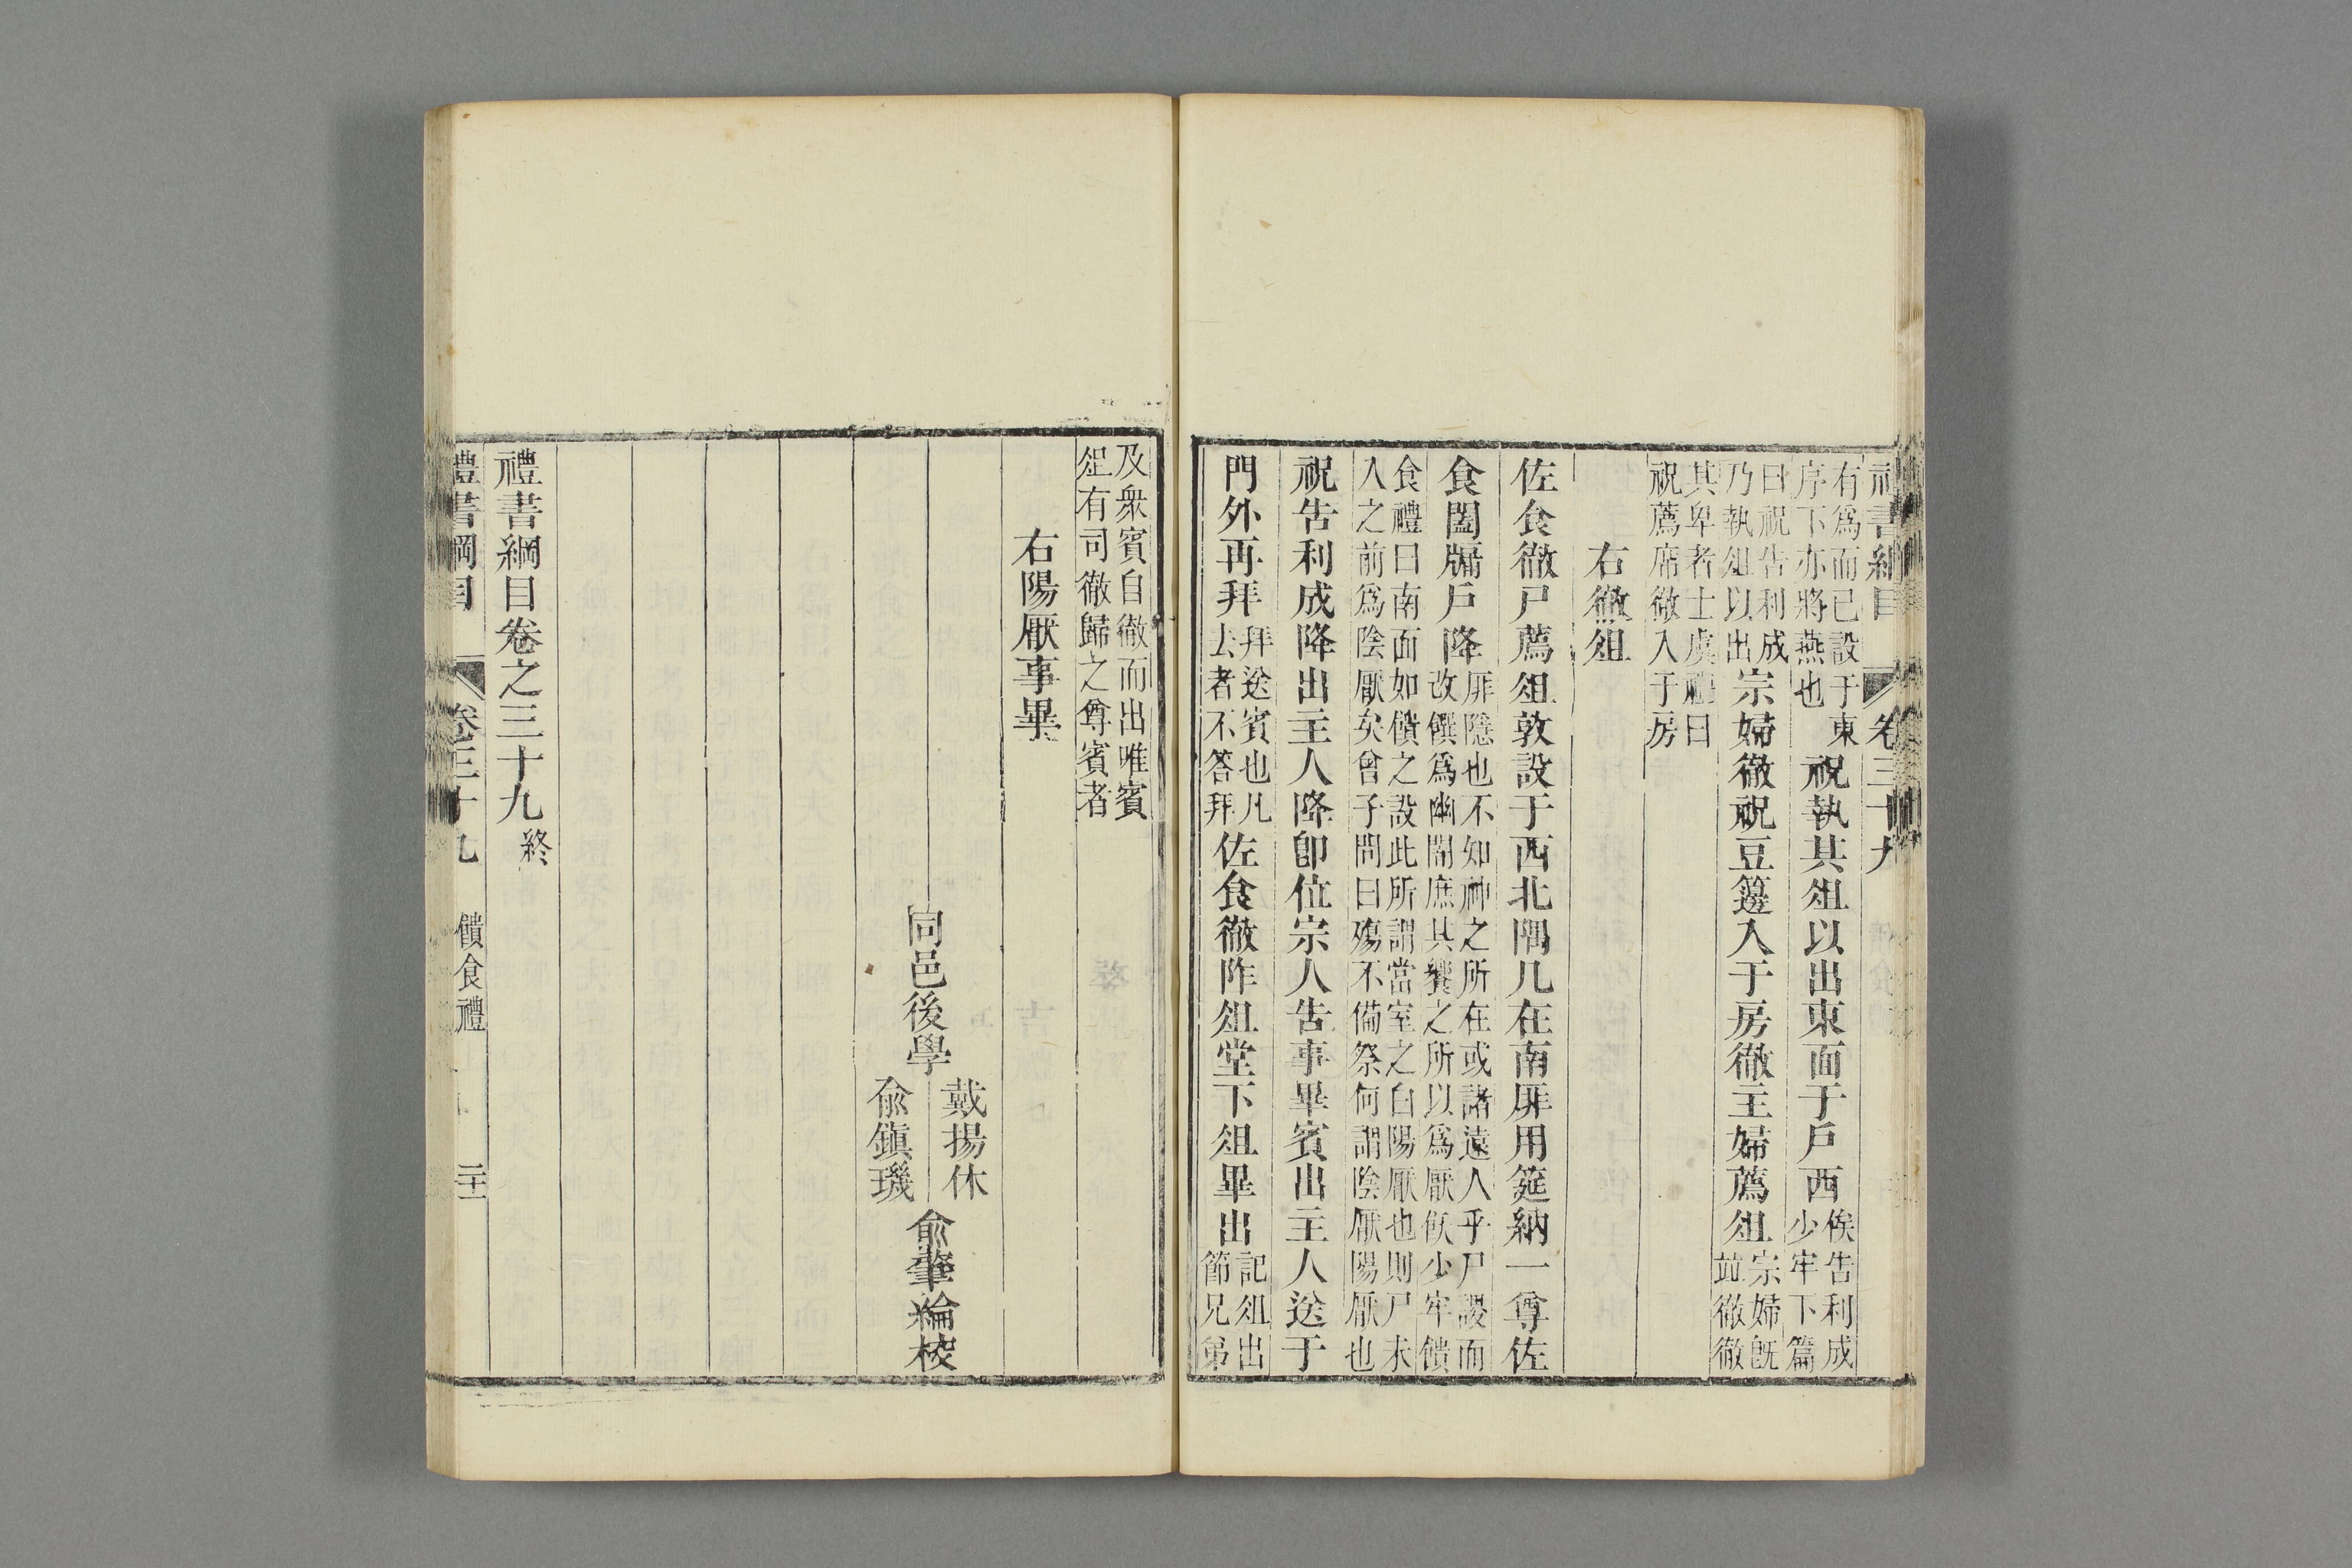 禮書綱目 卷三十九
有爲而已設于東
序下亦將燕也
祝執其俎以出東面于戶西
俟告利成
少牢下篇
曰祝告利成
乃執俎以出
宗婦徹祝豆籩入于房徹主婦薦俎
宗婦既
竝徹徹
其卑者士虞禮曰
祝薦席徹入于房
右徹俎
佐食徹尸薦俎敦設于西北隅几在南厞用筵納一尊佐
食闔牖戶降
厞隱也不如神之所在或諸遠人乎尸謖而
改饌爲幽闇庶其饗之所以爲厭飫少牢饋
食禮曰南面如饋之設此所謂當室之白陽厭也則尸未
入之前爲陰厭矣曾子問曰殤不備祭何謂陰厭陽厭也
祝告利成降出主人降卽位宗人告事畢賓出主人送于
門外再拜
拜送賓也凡
去者不答拜
佐食徹阼俎堂下俎畢出
記俎出
節兄弟
及衆賓自徹而出唯賓
俎有司徹歸之尊賓者
右陽厭事畢
同邑後學
戴揚休
俞鎮璣
俞肇綸校
禮書綱目卷之三十九終
禮書綱目 卷三十九 饋食禮 二十一